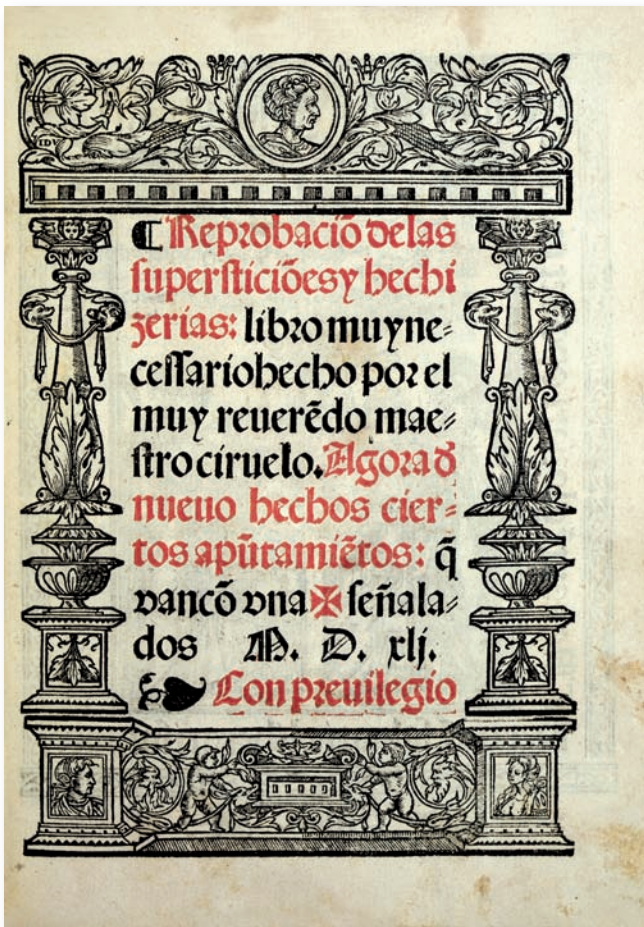 IDV
¶ Reprobaciō delas
supersticiōesy hechi
zerias: libro muyne⸗
cessariohecho por el
muy reuerēdo mae⸗
stro ciruelo. Agora đ
nueuo hechos cier⸗
tos apūtamiētos: q̄
vancō vna ✠ señala⸗
dos M. D. xlj.
❧ Con preuilegio